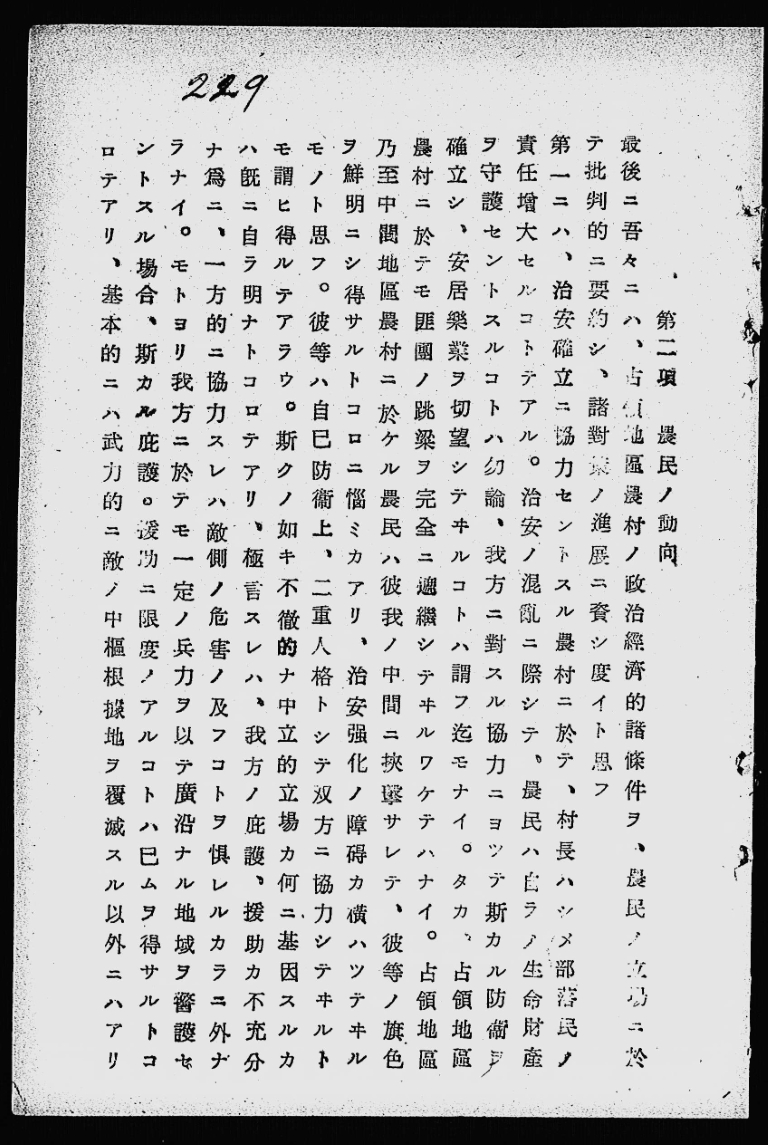 229
第二項 農民ノ動向
最後ニ吾々ニハ、占領地區農村ノ政治經濟的諸條件ヲ、農民ノ立場ニ於
テ批判的ニ要約シ、諸對策ノ進展ニ資シ度イト思フ
第一ニハ、治安確立ニ協力セントスル農村ニ於テ、村長ハジメ部落民ノ
責任增大セルコトテアル。治安ノ混亂ニ際シテ、農民ハ自ラノ生命財產
ヲ守護セントスルコトハ勿論、我方ニ對スル協力ニヨツテ斯カル防衞ヲ
確立シ、安居樂業ヲ切望シテヰルコトハ謂フ迄モナイ。タカ、占領地區
農村ニ於テモ匪團ノ跳梁ヲ完全ニ遮繼シテヰルワケテハナイ。占領地區
乃至中間地區農村ニ於ケル農民ハ彼我ノ中間ニ挾擊サレテ、彼等ノ旗色
ヲ鮮明ニシ得サルトコロニ惱ミカアリ、治安强化ノ障碍カ橫ハツテヰル
モノト思フ。彼等ハ自己防衞上、二重人格トシテ双方ニ協力シテヰルト
モ謂ヒ得ルテアラウ。斯クノ如キ不徹的ナ中立的立場カ何ニ基因スルカ
ハ旣ニ自ラ明ナトコロテアリ、極言スレハ、我方ノ庇護、援助カ不充分
ナ爲ニ、一方的ニ協力スレハ敵側ノ危害ノ及フコトヲ惧レルカラニ外ナ
ラナイ。モトヨリ我方ニ於テモ一定ノ兵力ヲ以テ廣沿ナル地域ヲ警護セ
ントスル場合、斯カル庇護。援助ニ限度ノアルコトハ已ムヲ得サルトコ
ロテアリ、基本的ニハ武力的ニ敵ノ中樞根據地ヲ覆滅スル以外ニハアリ